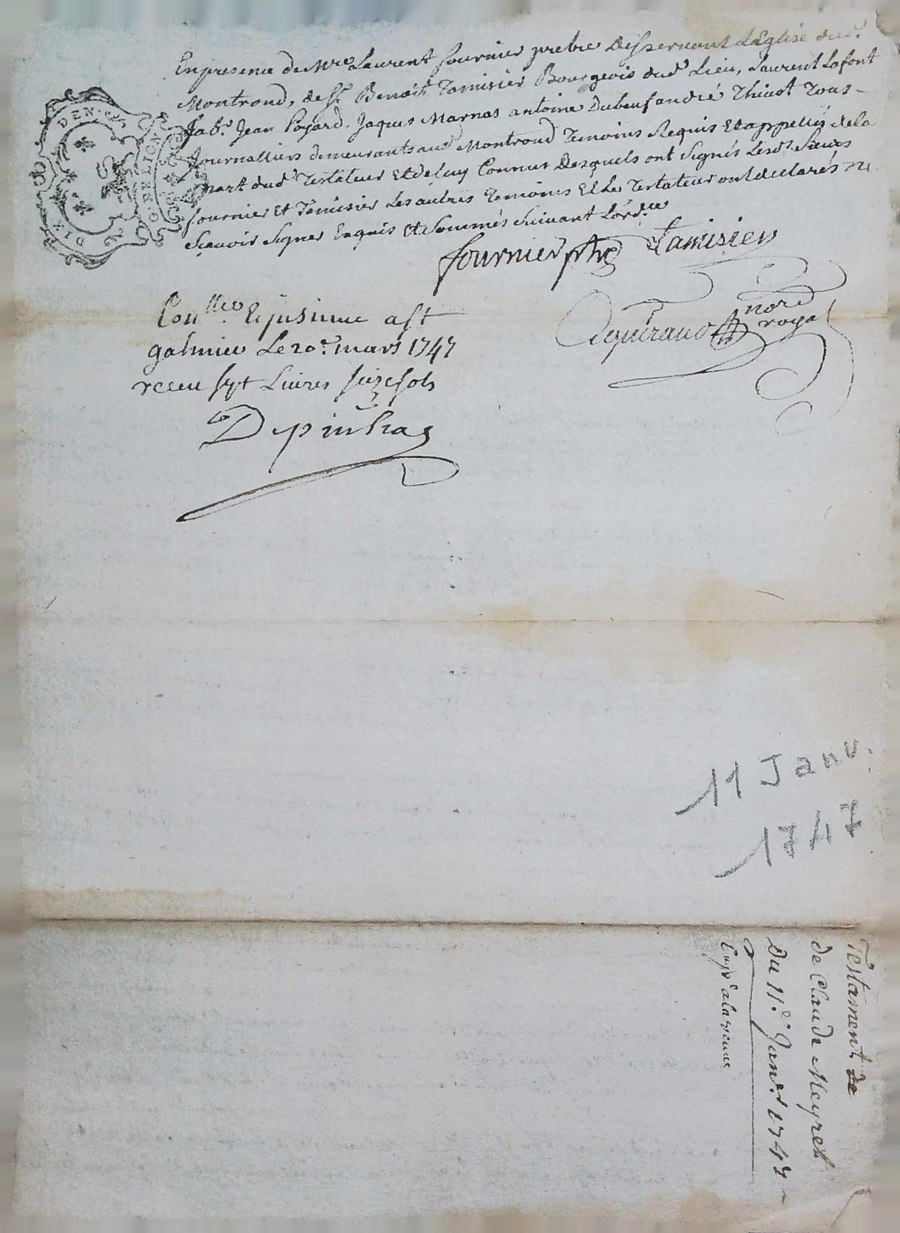 En presence de Mre Laurent fournier prebre Desservant L'Eglise dud.
Montrond, de sr. Benoist Tamisier Bourgeois dud. Lieu, Laurent Lafont
fabr. Jean Jaques Marnas antoine Thivot Tous-
Journalliers demeurants aud. Montrond Temoins Requis Et appellés de la
part dud. Testateur Et de luy Connus Desquels ont Signés Lesd. Sieurs
fournier Et Tamisier Les autres Temoins Et Le Testateur ont declarés ne
Scavoir Signer Enquis Et Sommés Suivant L'ordce
fournier ptre Tamisier
nore
royal
Conllée Et Insinué a St
galmier Le 20e. mars 1747
receu sept Livres seize sols
DEN.
G DE LION
DIX
11 Janv.
1747
Testament de
de Claude Meyret
Du 11e. Janer. 1747